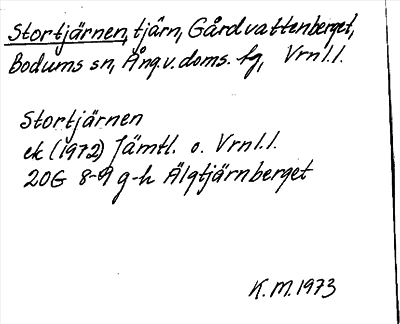 Stortjärnen, tjärn, Gårdvattenberget,
Bodums sn, Ång.v.doms. fg, Vrnl.l.
Stortjärnen
ek (1972) Jämtl. o. Vrnl.l.
20G 8-9 g-h Älgtjärnberget
K.M.1973